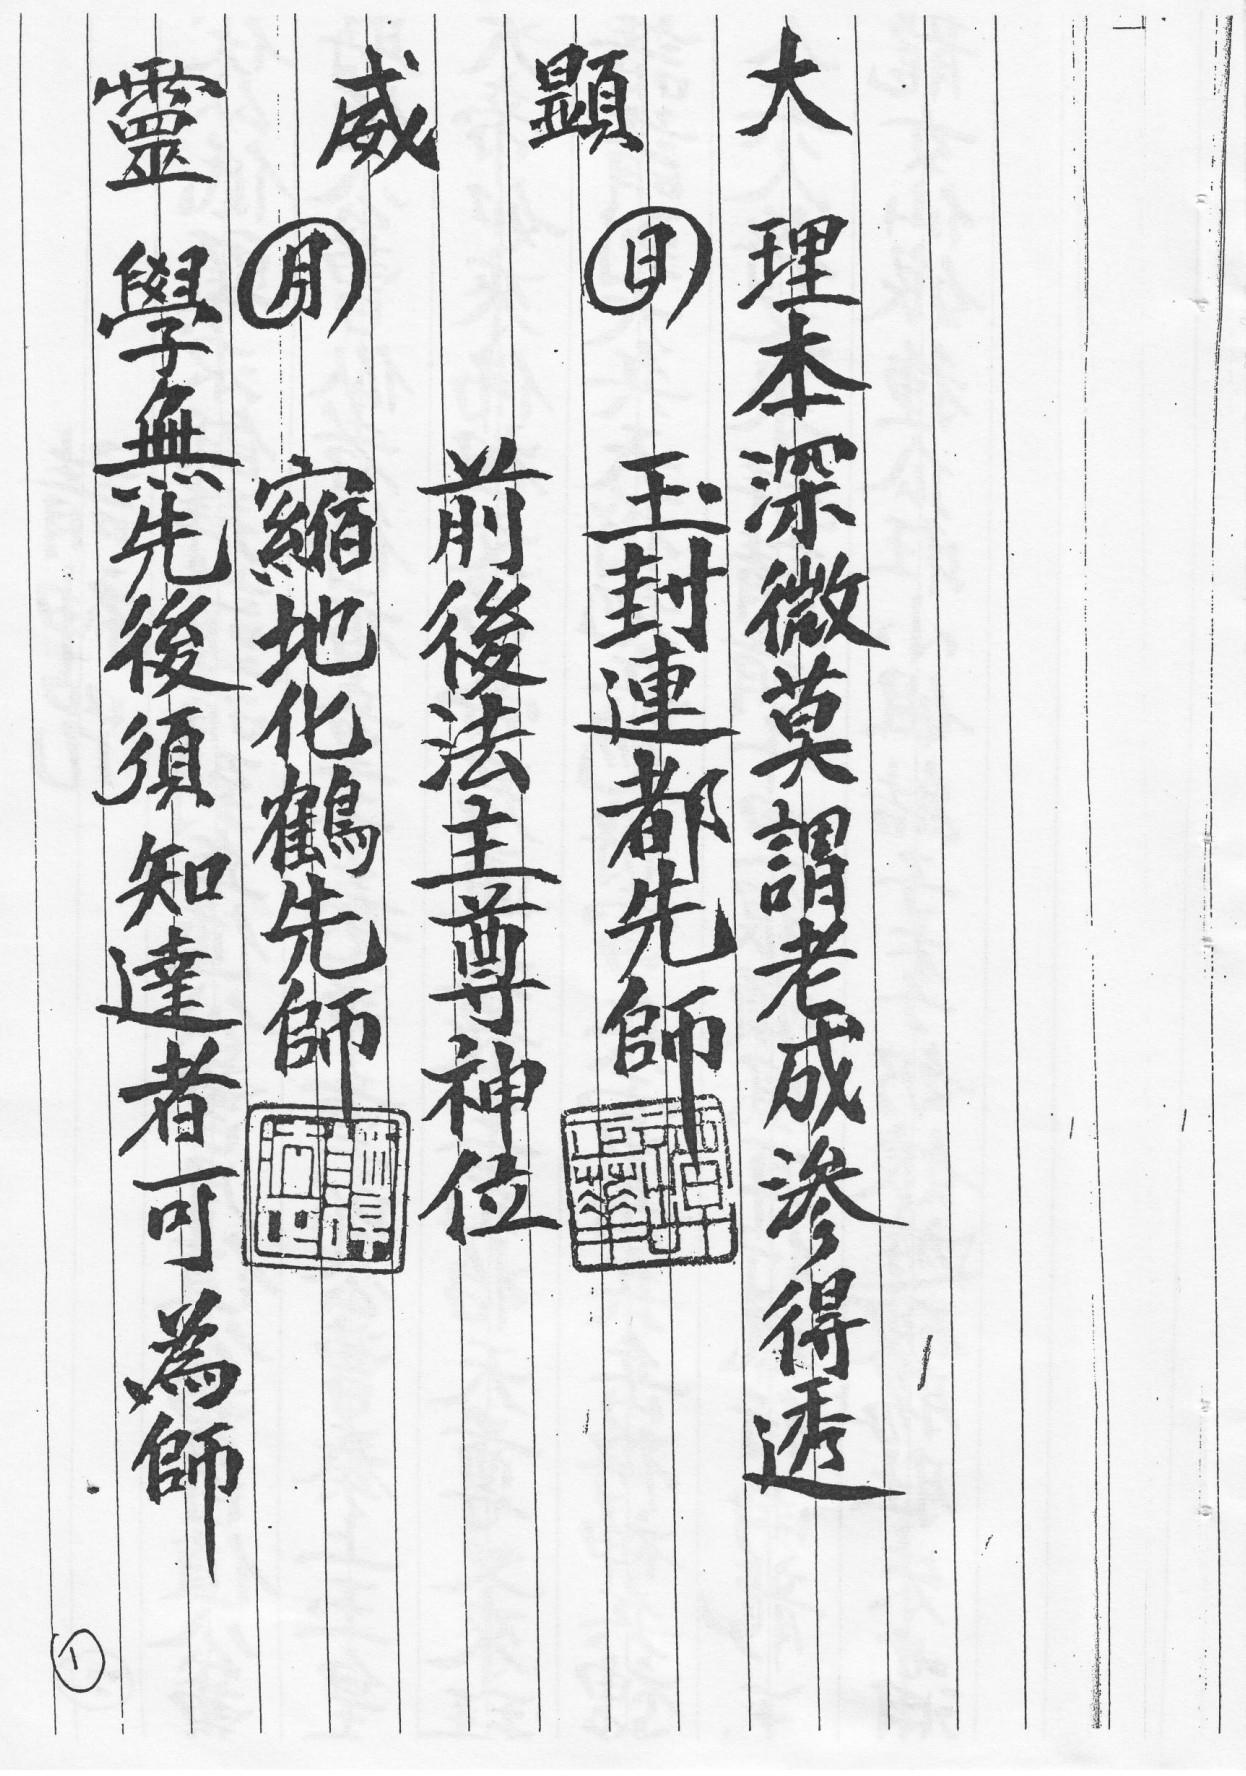 大顯威靈
理本深微莫謂老成渗得透
日
玉封連都先師
前後法主尊神位
月
縮地化鶴先師
學無先後須知達者可為師
1